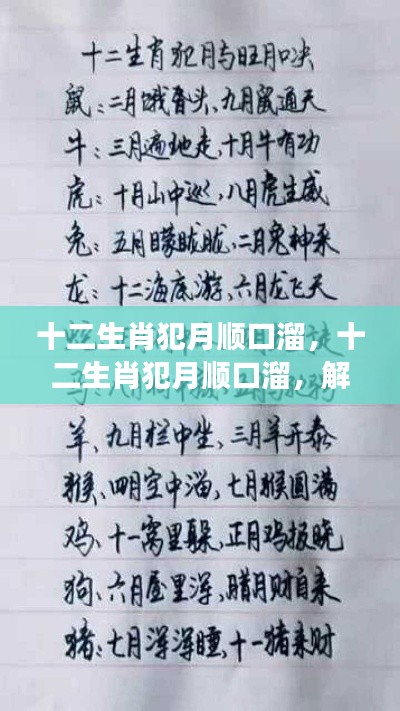 十二生肖犯月与旺月口决
鼠：二月饿昏头、九月鼠通天
牛：三月遍地走，十月牛有功
虎：十月山中巡，八月虎生威
兔：五月朦胧胧，二月兔神采
龙：十二海底游，六月龙飞天
十二生肖犯月顺口溜，十
二生肖犯月顺口溜，解
羊、九月栏中坐，三月羊开泰
猴、四月空中溜，七月猴圆满
鸡、十一窝里躲，正月鸡报晓
狗、六月屋里浑，腊月财自来
猪：七月浑浑睡，十一猪来财